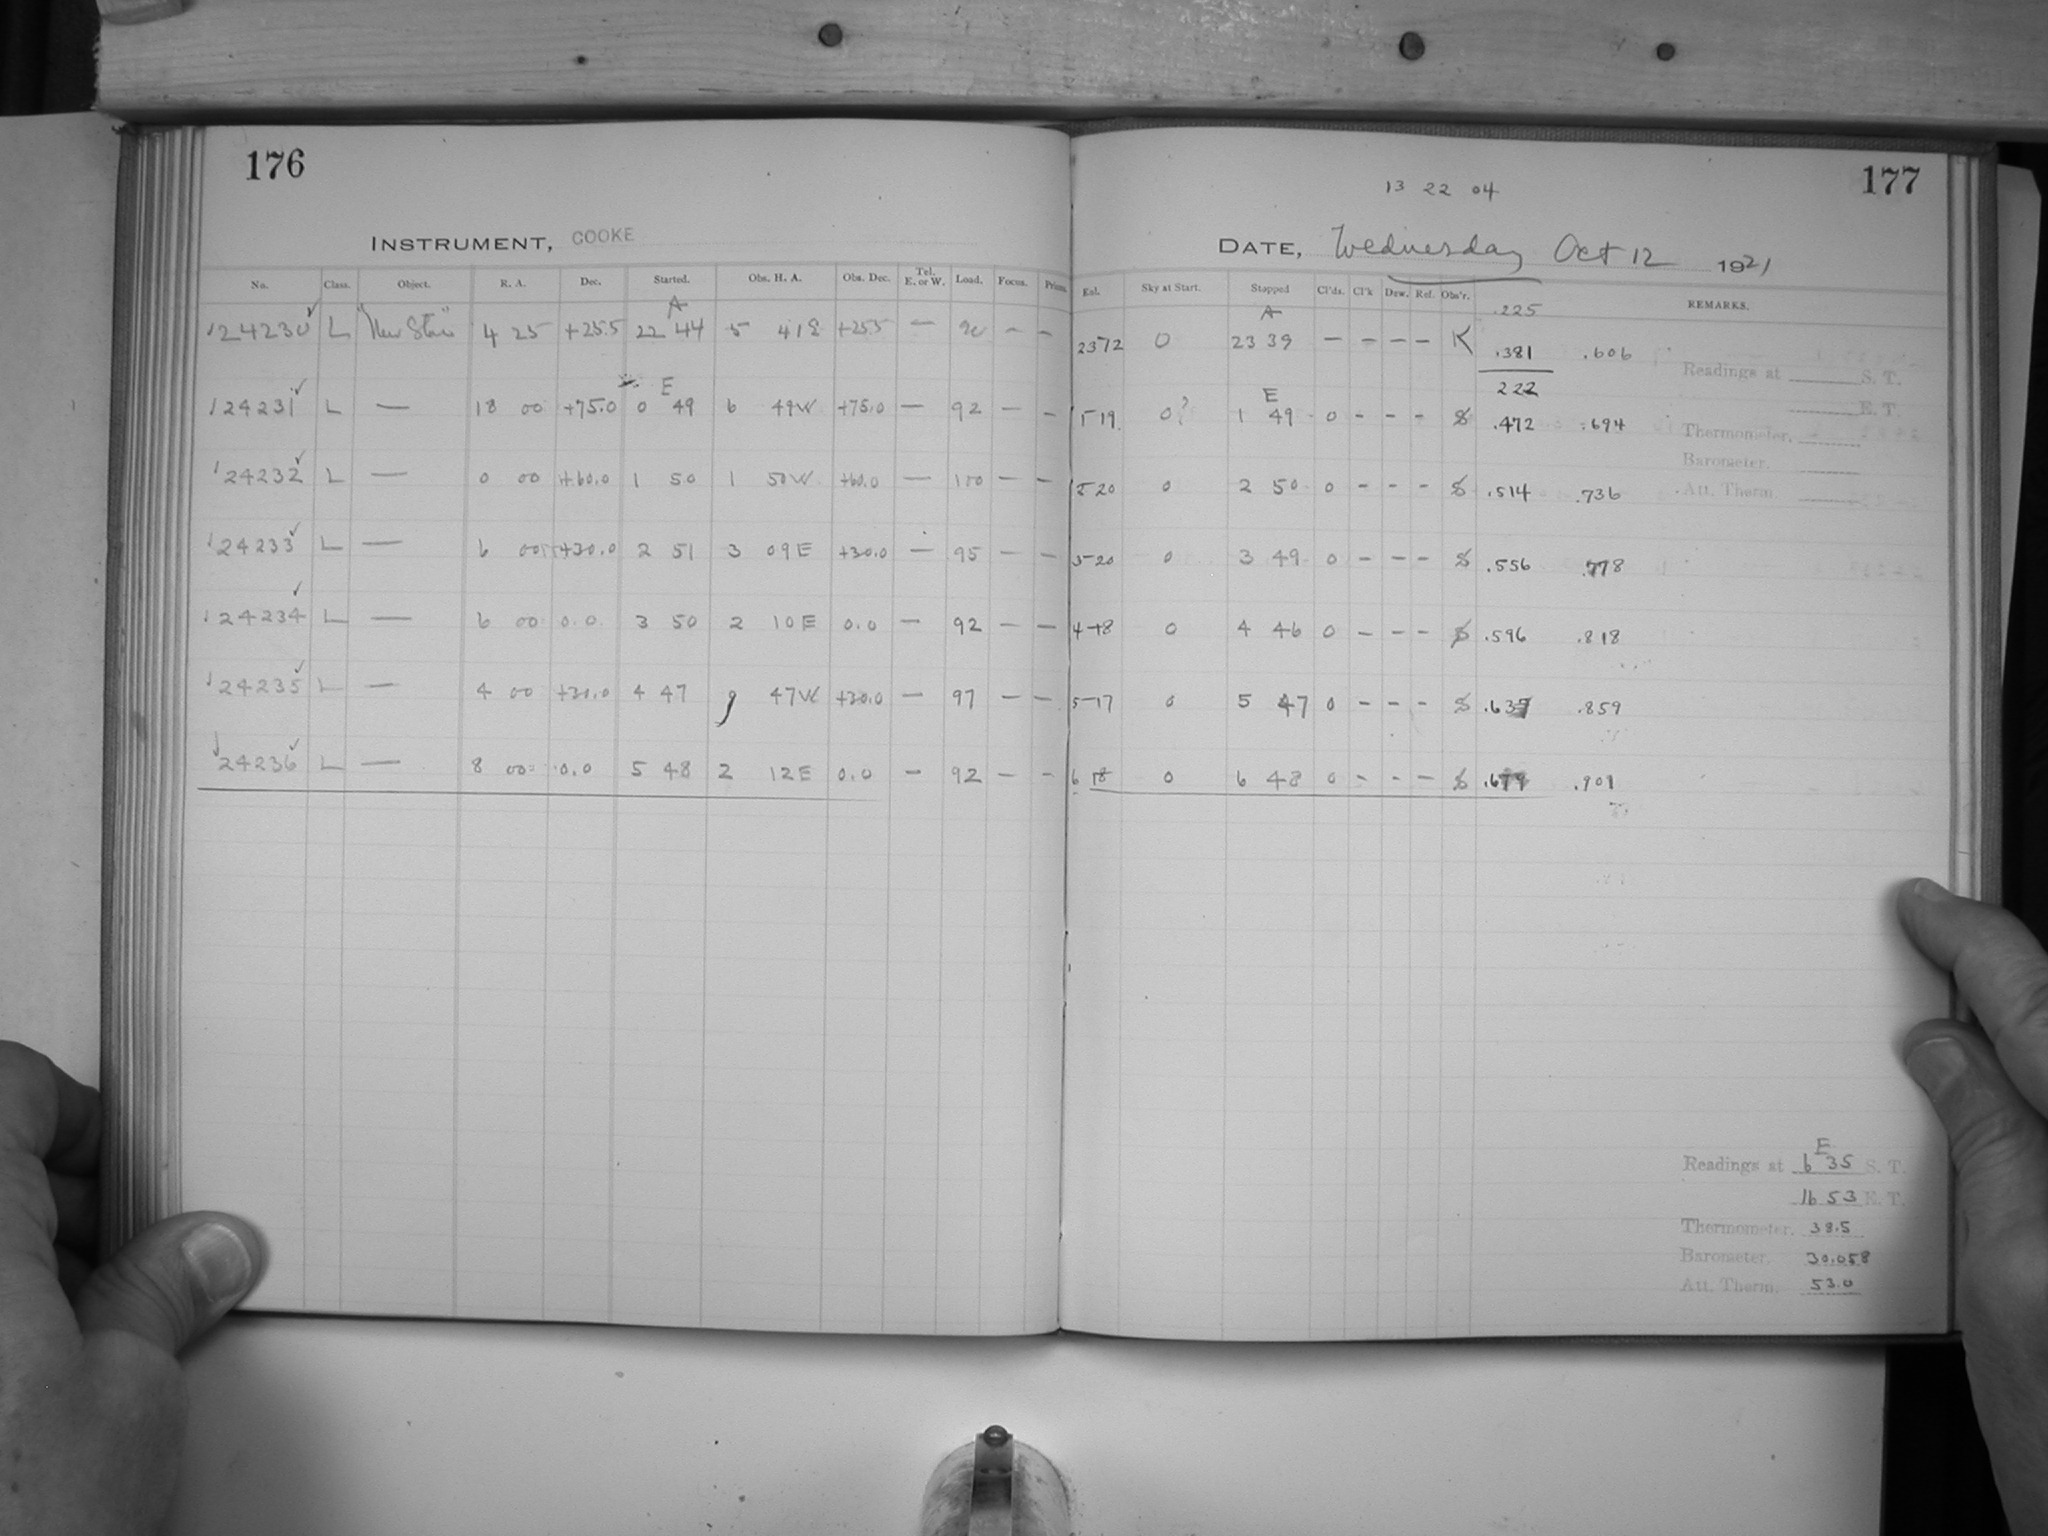 176
INSTRUMENT, COOKE
No. Class. Object. R. A. Dec. Started. Obs. H. A. Obs. Dec. Tel. E. or W. Load. Focus.
A
124230 L "New Star" 4 25 +25.5 22 44 5 41E +25.5 — —
E
124231 L — 18 00 +75.0 0 49 6 49W +75.0 — 92 — —
124232 L — 0 00 +60.0 1 50 1 50W +60.0 — 100 — —
124233 L — 6 00 +30.0 2 51 3 09E +30.0 — 95 — —
124234 L — 6 00 0.0 3 50 2 10E 0.0 — 92 — —
124235 L — 4 00 +30.0 4 47 47W +30.0 — 97 — —
124236 L — 8 00 0.0 5 48 2 12E 0.0 — 92 — —
177
13 22 04
DATE, Wednesday Oct 12 1921
Sky at Start. Stopped Cl'ds. Cl'k Dew. Ref. Obs'r. REMARKS.
.225
A
0 23 39 — — — — K .381 .606
Readings at S. T.
222
E. T.
E
19 0? 1 49 0 - - - S .472 .694
Thermometer.
Barometer.
20 0 2 50 0 - - - S .514 .736
Att. Therm.
20 0 3 49 0 - - - S .556 .778
18 0 4 46 0 - - - S .596 .818
17 0 5 47 0 - - - S .637 .859
18 0 6 48 0 - - - S .679 .901
E
Readings at 6 35 S. T.
16 53 E. T.
Thermometer. 38.5
Barometer. 30.058
Att. Therm. 53.0